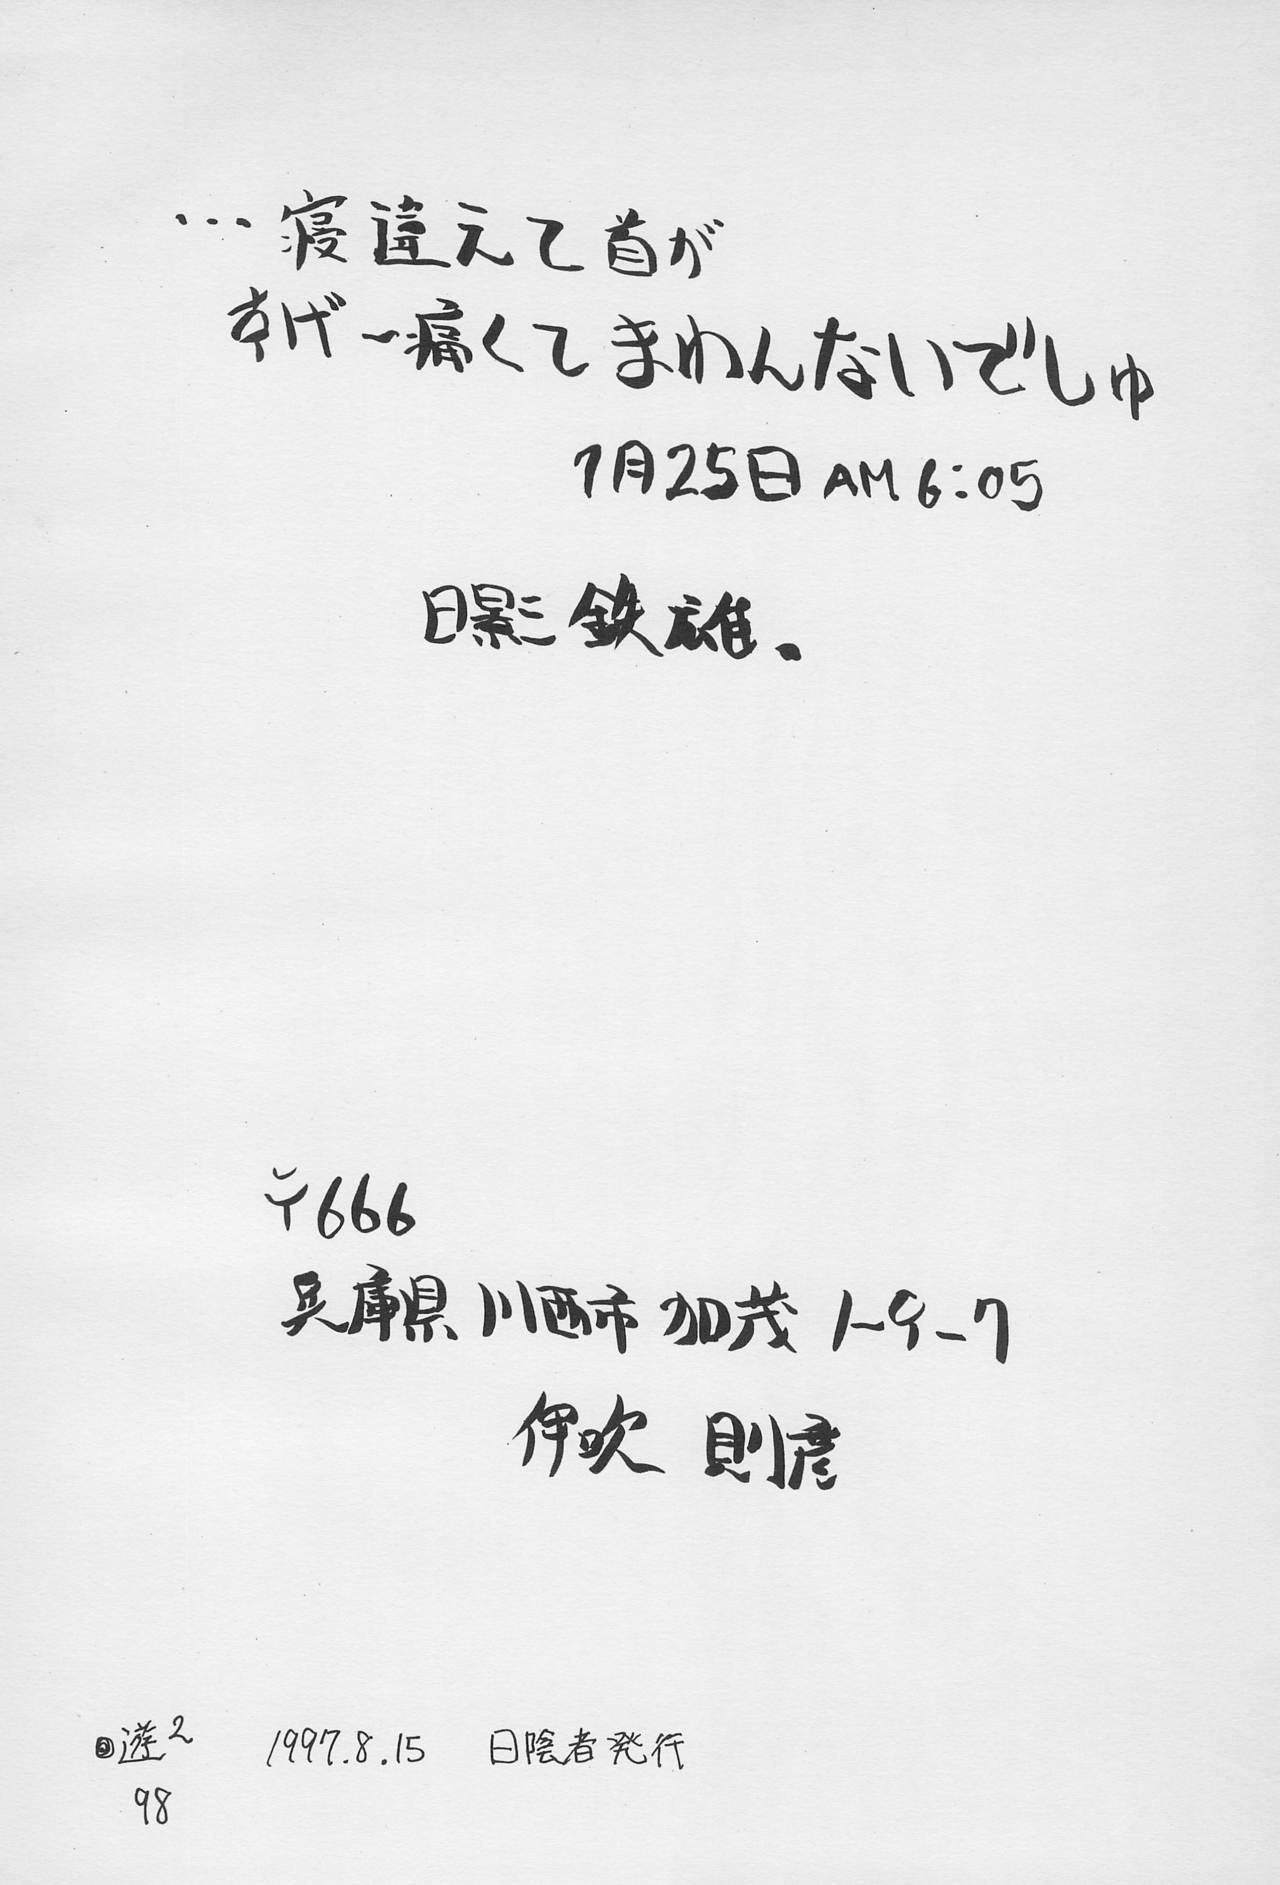 …寝違えて首が
すげ〜痛くてまわんないでしゅ
7月25日 AM 6:05
日影鉄雄。
〒666
兵庫県川西市加茂1-9-7
伊吹 則彦
遊2 1997.8.15 日陰者発行
98